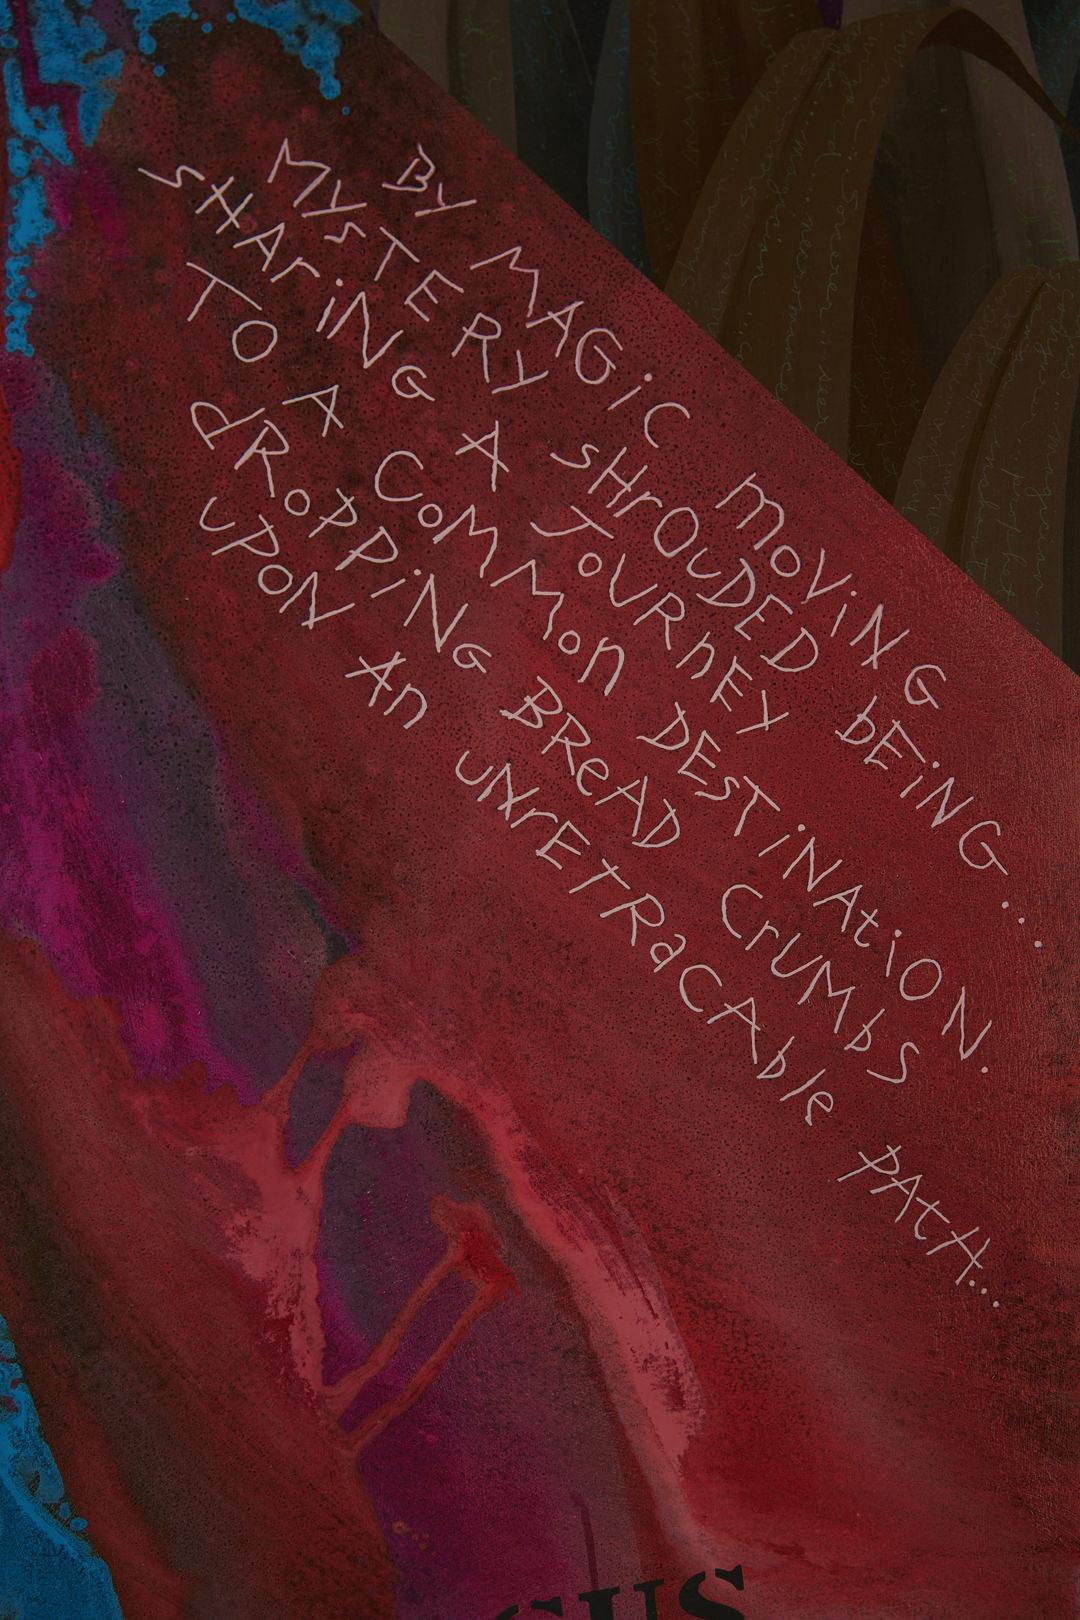 By MAGiC moViNG
MYsTERY sHrOuDED bEiNG...
sHAriNG A JoURnEY
TO A CoMMon DESTiNAtiON.
dRoPPiNG BReAD CrUMbS
uPoN An uNrETRaCAble PAtH...